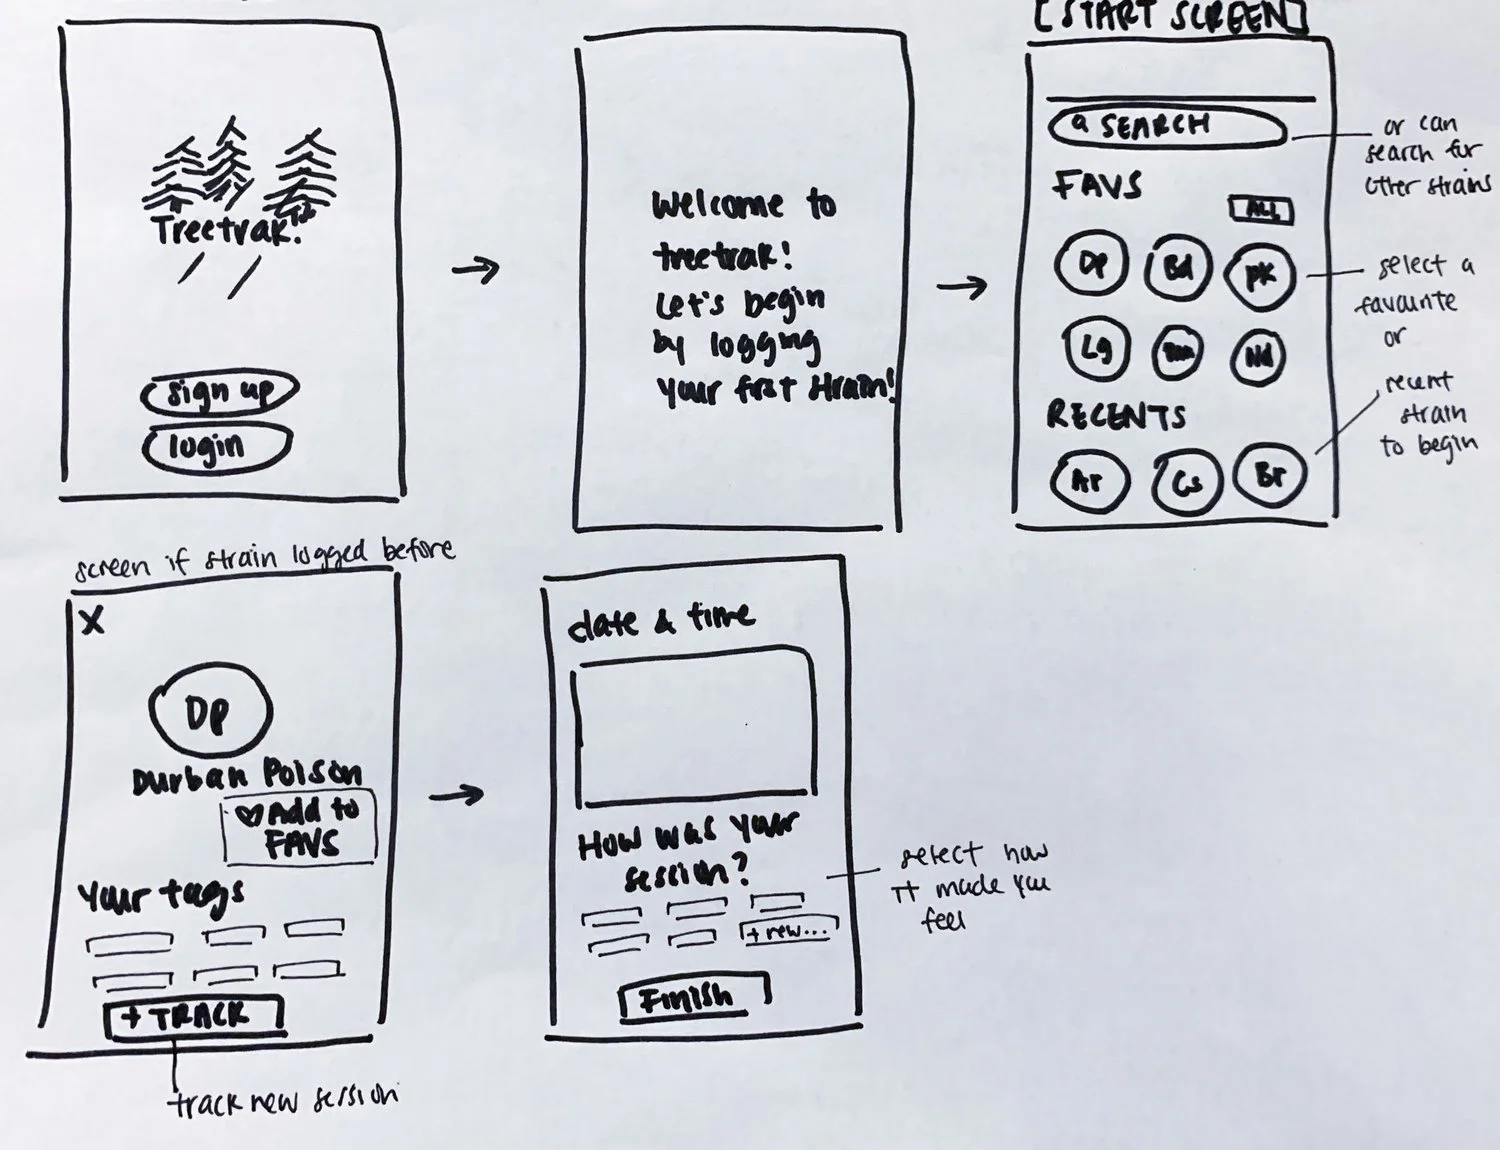 [START SCREEN]
Treetrak!
sign up
login
Welcome to
treetrak!
Let's begin
by logging
your first strain!
SEARCH
FAVS
ALL
Dp
Bd
PK
Lg
Nd
RECENTS
Ar
Cs
Br
or can
search for
other strains
select a
favourite
or
recent
strain
to begin
screen if strain logged before
X
DP
Durban Poison
Add to
FAVS
Your tags
+ TRACK
track new session
date & time
How was your
session?
+ new...
Finish
select how
it made you
feel